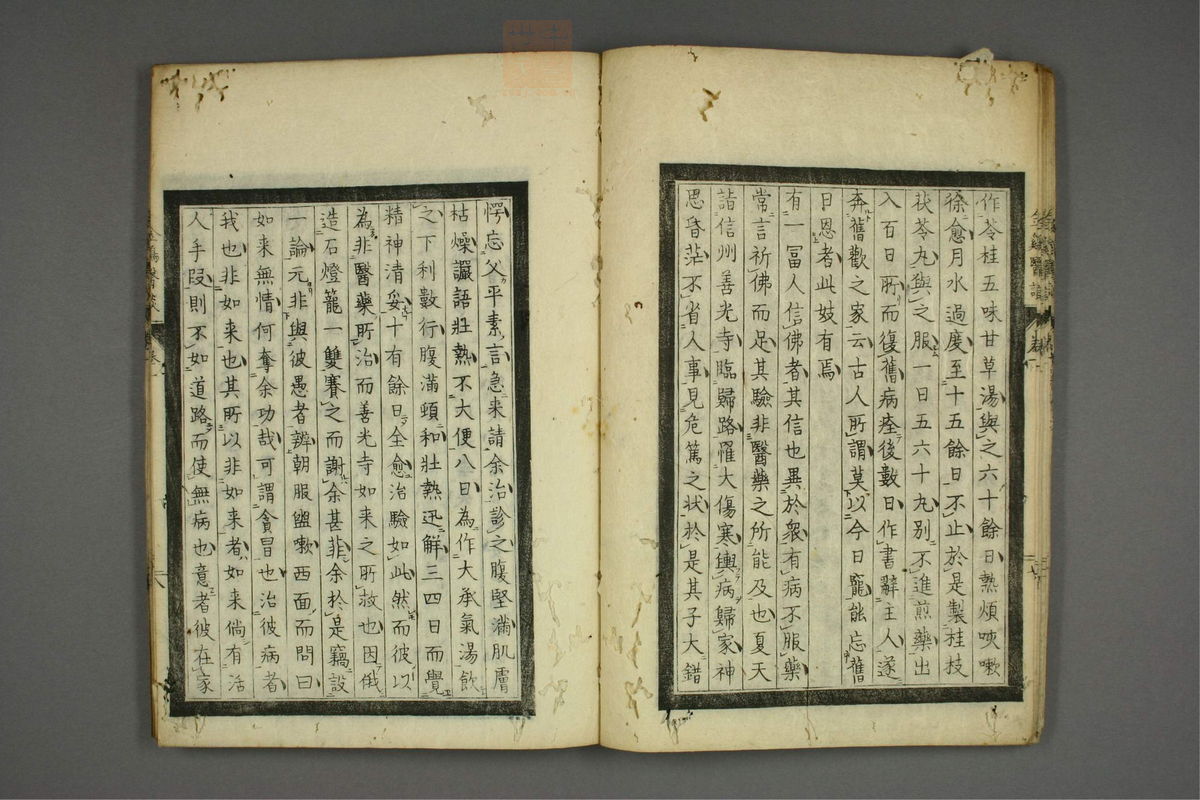 作苓桂五味甘草湯與之六十餘日熱煩咳嗽
徐愈月水過度至十五餘日不止於是製桂枝
茯苓丸與之服一日五六十丸別不進煎藥出
入百日所而復舊病痊後數日作書辭主人遂
奔舊歡之家云古人所謂莫以今日寵能忘舊
日恩者此妓有焉
有一冨人信佛者其信也異於衆有病不服藥
常言祈佛而足其驗非醫藥之所能及也夏天
詣信州善光寺臨歸路罹大傷寒輿病歸家神
思昏茫不省人事見危篤之狀於是其子大錯
愕忘父平素言急来請余治診之腹堅滿肌膚
枯燥讝語壯熱不大便八日為作大承氣湯飲
之下利數行腹滿頓和壯熱迅解三四日而覺
精神清妥十有餘日全愈治驗如此然而彼以
為非醫藥所治而善光寺如来之所救也因俄
造石燈籠一雙賽之而謝余甚菲余於是竊設
一論元非與彼愚者辨朝服盥嗽西面而問曰
如来無情何奪余功哉可謂貪冒也治彼病者
我也非如来也其所以非如来者如来倘有活
人手段則不如道路而使無病也意者彼在家